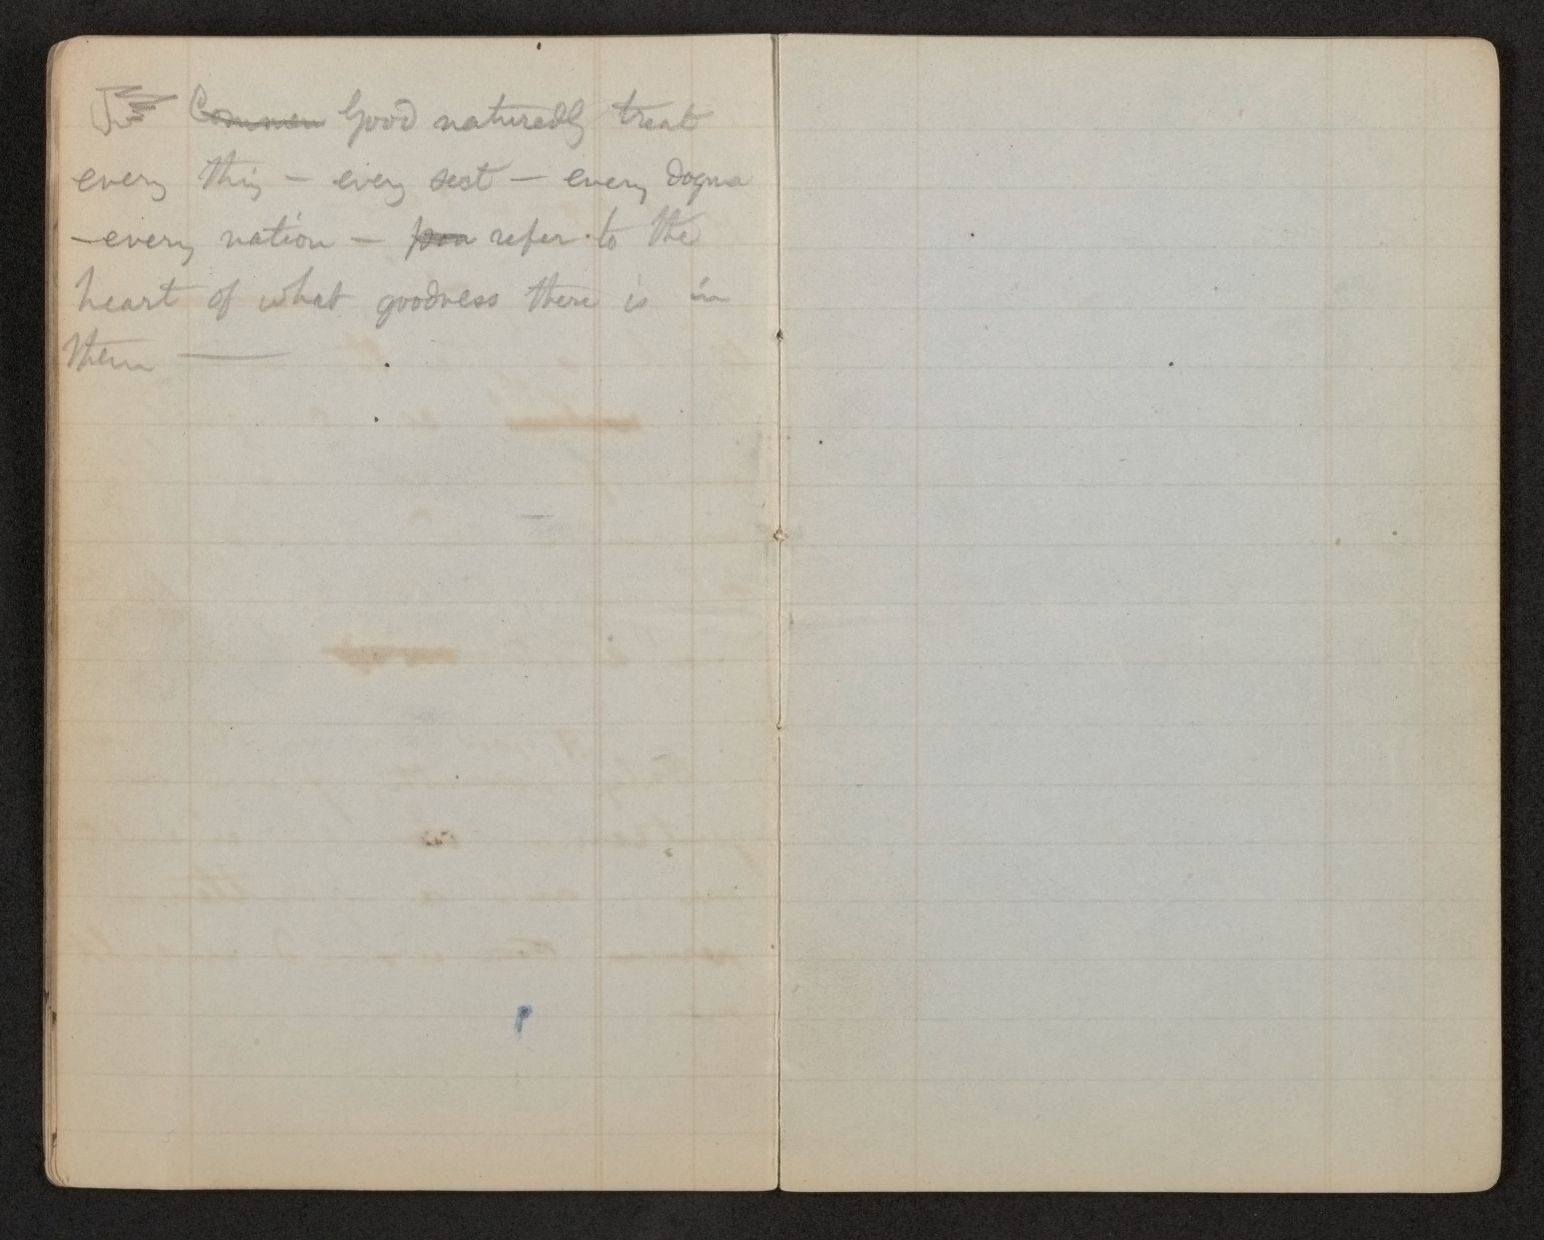 ☞ Good naturedly treat
every thing — every sect — every dogma
—every nation — refer to the
heart of what goodness there is in
them ——